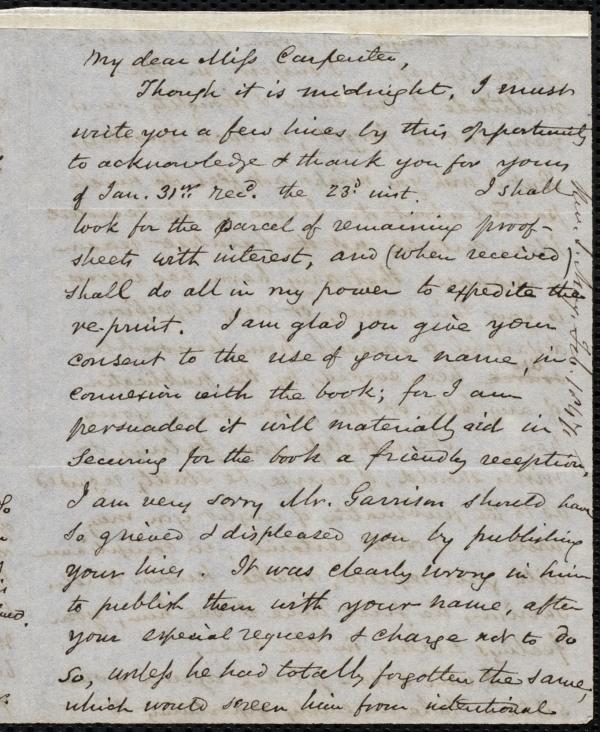 My dear Miss Carpenter,
Though it is midnight, I must
write you a few lines by this opportunity
to acknowledge & thank you for yours
of Jan. 31st rec'd. the 23d inst. I shall
look for the parcel of remaining proof-
sheets with interest, and (when received)
shall do all in my power to expedite the
re-print. I am glad you give your
consent to the use of your name, in
connexion with the book; for I am
persuaded it will materially aid in
securing for the book a friendly reception.
I am very sorry Mr. Garrison should have
so grieved & displeased you by publishing
your lines. It was clearly wrong in him
to publish them with your name, after
your especial request & charge not to do
so, unless he had totally forgotten the same,
which would screen him from intentional